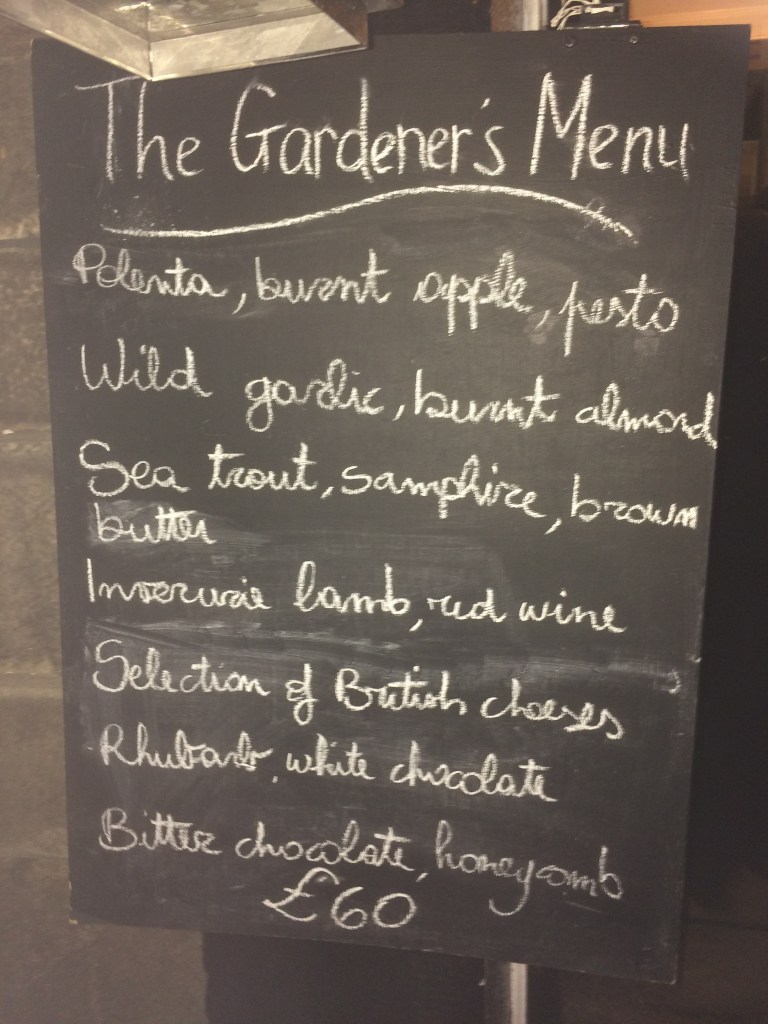 The Gardener's Menu
Polenta, burnt apple, pesto
Wild garlic, burnt almond
Sea trout, samphire, brown
butter
Inverurie lamb, red wine
Selection of British cheeses
Rhubarb, white chocolate
Bitter chocolate, honeycomb
£60